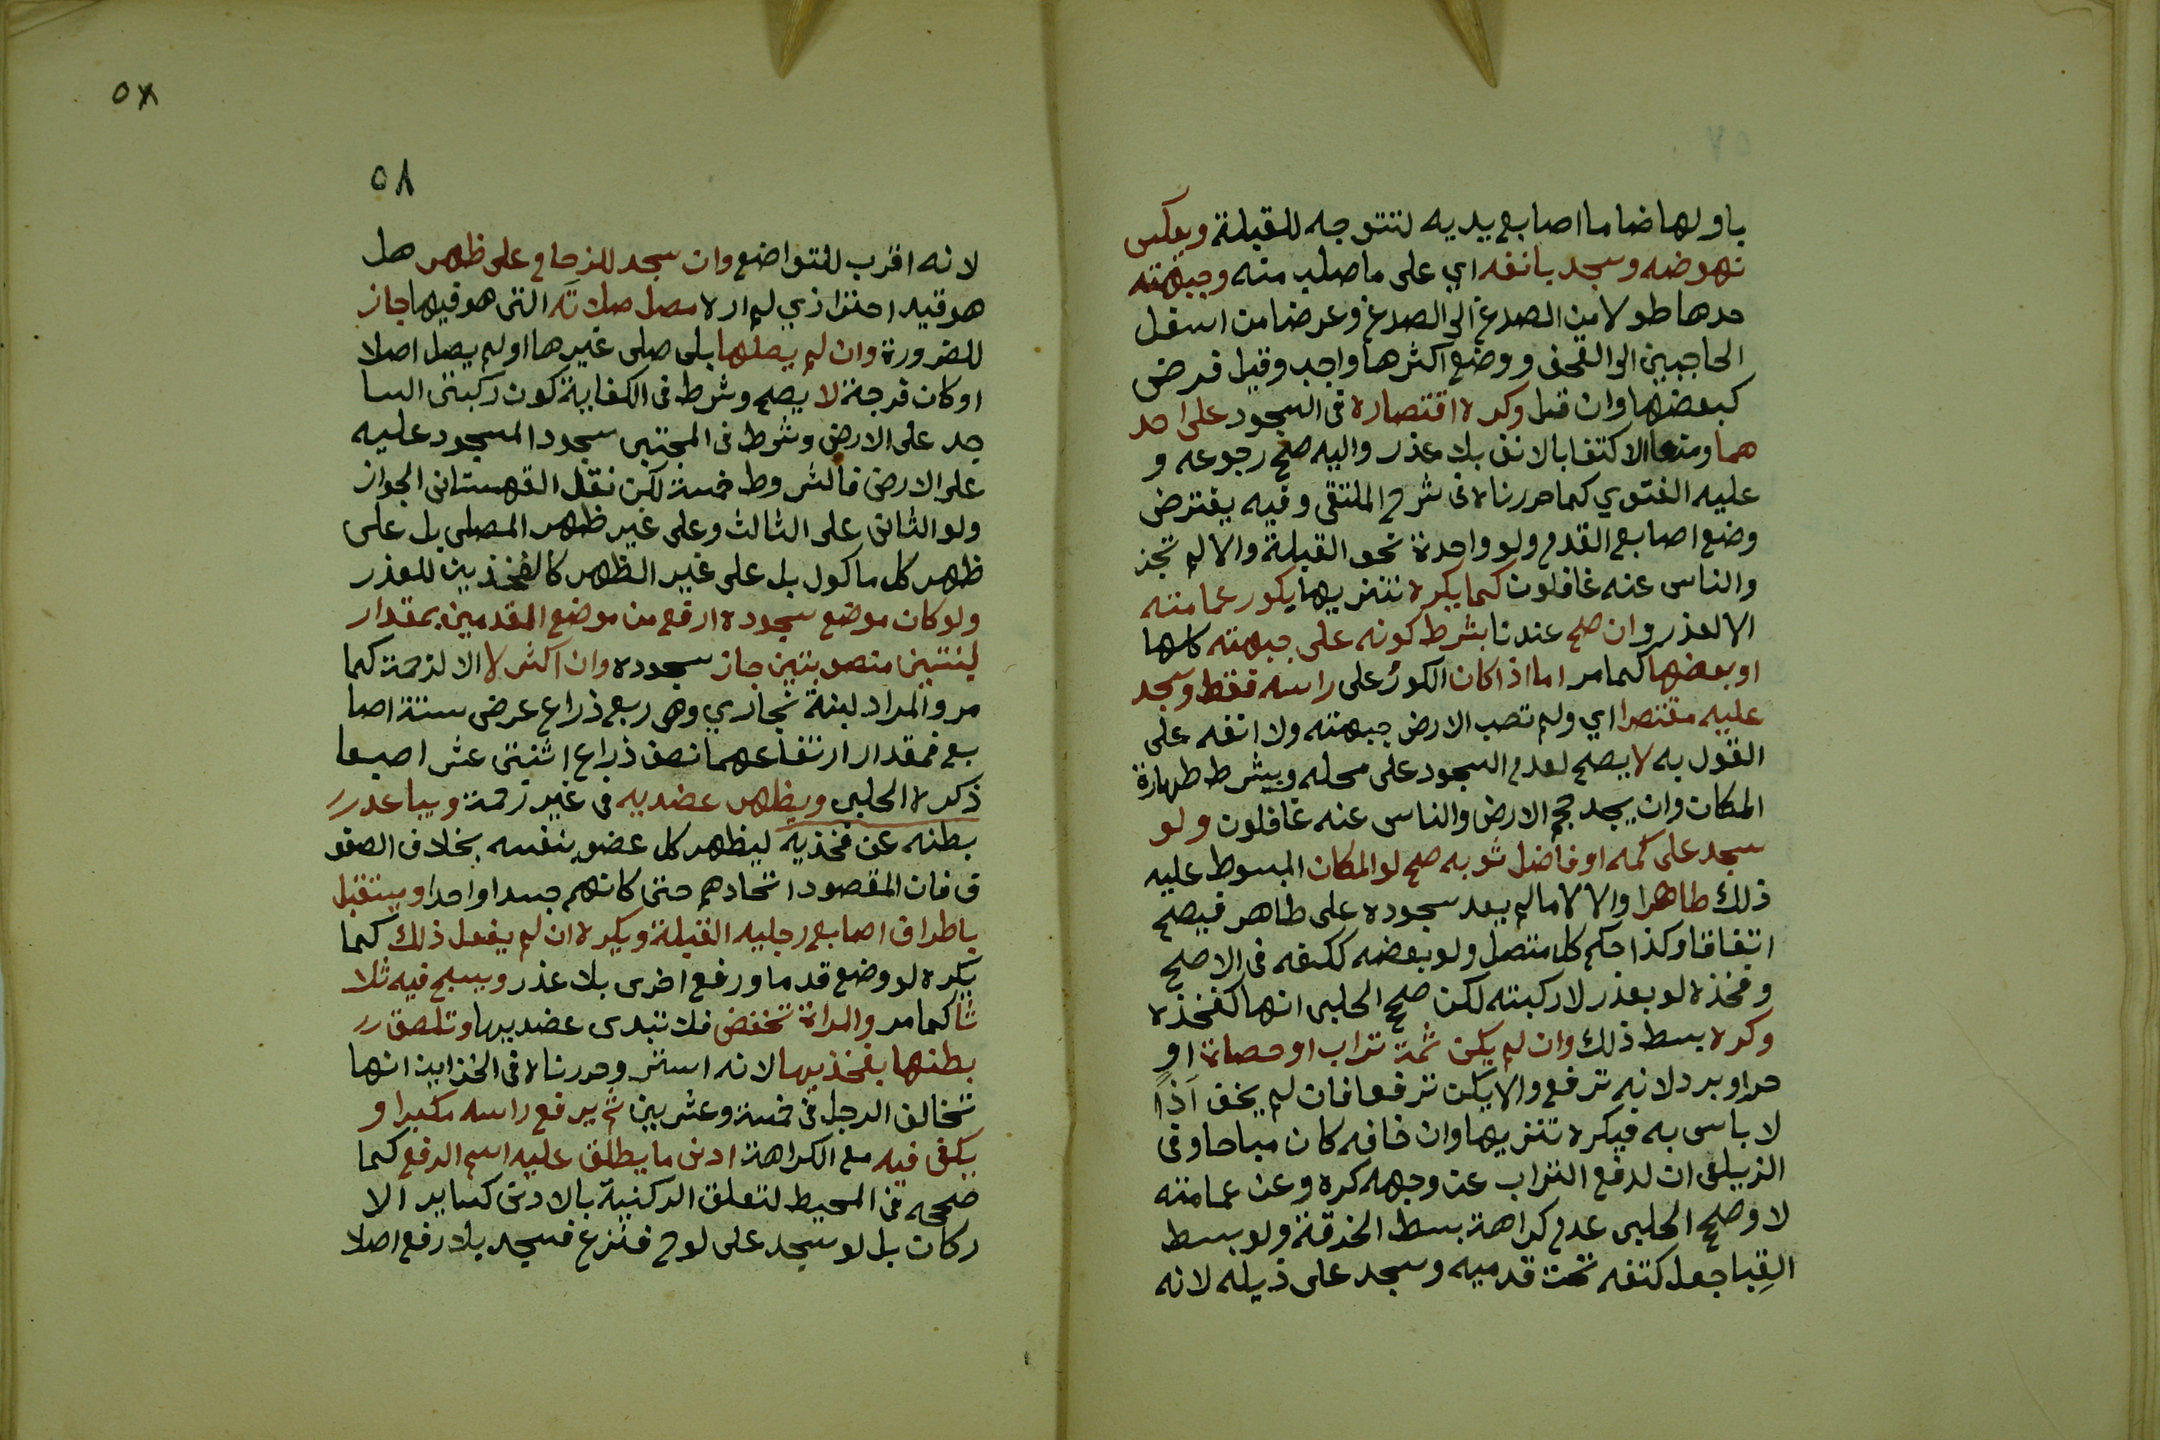 باولها ضاما اصابع يديه لتتوجه للقبلة وبعكس
نهوضه وسجد بانفه اي على ما صلب منه وجبهته
حدها طولا من الصدغ الى الصدغ وعرضا من اسفل
الحاجبين الى القحف ووضع اكثرها واجب وقيل فرض
كبعضها وان قل وكره اقتصاره في السجود على احد
هما ومنعا الاكتفا بالانف بلا عذر واليه صح رجوعه و
عليه الفتوي كما حررناه في شرح الملتقى وفيه يفترض
وضع اصابع القدم ولو واحدة نحو القبلة والا لم تجز
والناس عنه غافلون كما يكره تنزيها بكور عمامته
الا لعذر وان صح عندنا بشرط كونه على جبهته كلها
او بعضها كما مر اما اذا كان الكور على راسه فقط وسجد
عليه مقتصرا اي ولم تصب الارض جبهته ولا انفه على
القول به لا يصح لعدم السجود على محله ويشرط طهارة
المكان وان يجد حجم الارض والناس عنه غافلون ولو
سجد على كمه او فاضل ثوبه صح لو المكان المبسوط عليه
ذلك طاهرا والا لا ما لم يعد سجوده على طاهر فيصح
اتفاقا وكذا حكم كل متصل ولو بعضه ككفه في الاصح
وفخذه لو بعذر لا ركبته لكن صح الحلبي انها كفخذه
وكره بسط ذلك وان لم يكن ثمة تراب او حصاة او
حر او برد لانه ترفع والا يكن ترفعا فان لم يخف اذًا
لا باس به فيكره تنزيها وان خافه كان مباحا وفي
الزيلعي ان لدفع التراب عن وجهه كره وعن عمامته
لا وصح الحلبي عدم كراهة بسط الخرقة ولو بسط
القِبا جعل كتفه تحت قدميه وسجد على ذيله لانه
٥٨
٥٨
لانه اقرب للتواضع وان سجد للزحام على ظهر هل
هو قيد احترازي لم اره مصل صلاته التى هو فيها جاز
للضرورة وان لم يصلها بل صلى غيرها او لم يصل اصلا
او كان فرجة لا يصح وشرط في الكفاية كون ركبتى السا
جد على الارض وشرط في المجتبى سجود المسجود عليه
على الارض فالشروط خمسة لكن نقل القهستانى الجواز
ولو الثانى على الثالث وعلى غير ظهر المصلى بل على
ظهر كل ماكول بل على غير الظهر كالفخذين للعذر
ولو كان موضع سجوده ارفع من موضع القدمين بمقدار
لبنتين منصوبتين جاز سجوده وان اكثر لا الا لزحمة كما
مر والمراد لبنة بخاري وهى ربع ذراع عرض ستة اصا
بع فمقدار ارتفاعهما نصف ذراع اثنتى عشر اصبعا
ذكره الحلبي ويظهر عضديه في غير زحمة ويباعد
بطنه عن فخذيه ليظهر كل عضو بنفسه بخلاف الصفو
ف فان المقصود اتحادهم حتى كانهم جسدا واحدا ويستقبل
باطراف اصابع رجليه القبلة ويكره ان لم يفعل ذلك كما
يكره لو وضع قدما ورفع اخرى بلا عذر ويسبح فيه ثلا
ثا كما مر والمراة تخفض فلا تبدى عضديها وتلصق
بطنها بفخذيها لانه استر وحررناه في الخزاين انها
تخالف الرجل في خمسة وعشرين ثم يرفع راسه مكبرا و
يكفى فيه مع الكراهة ادنى ما يطلق عليه اسم الرفع كما
صححه في المحيط لتعلق الركنية بالادنى كساير الا
ركان بل لو سجد على لوح فنزع فسجد بلا رفع اصلا